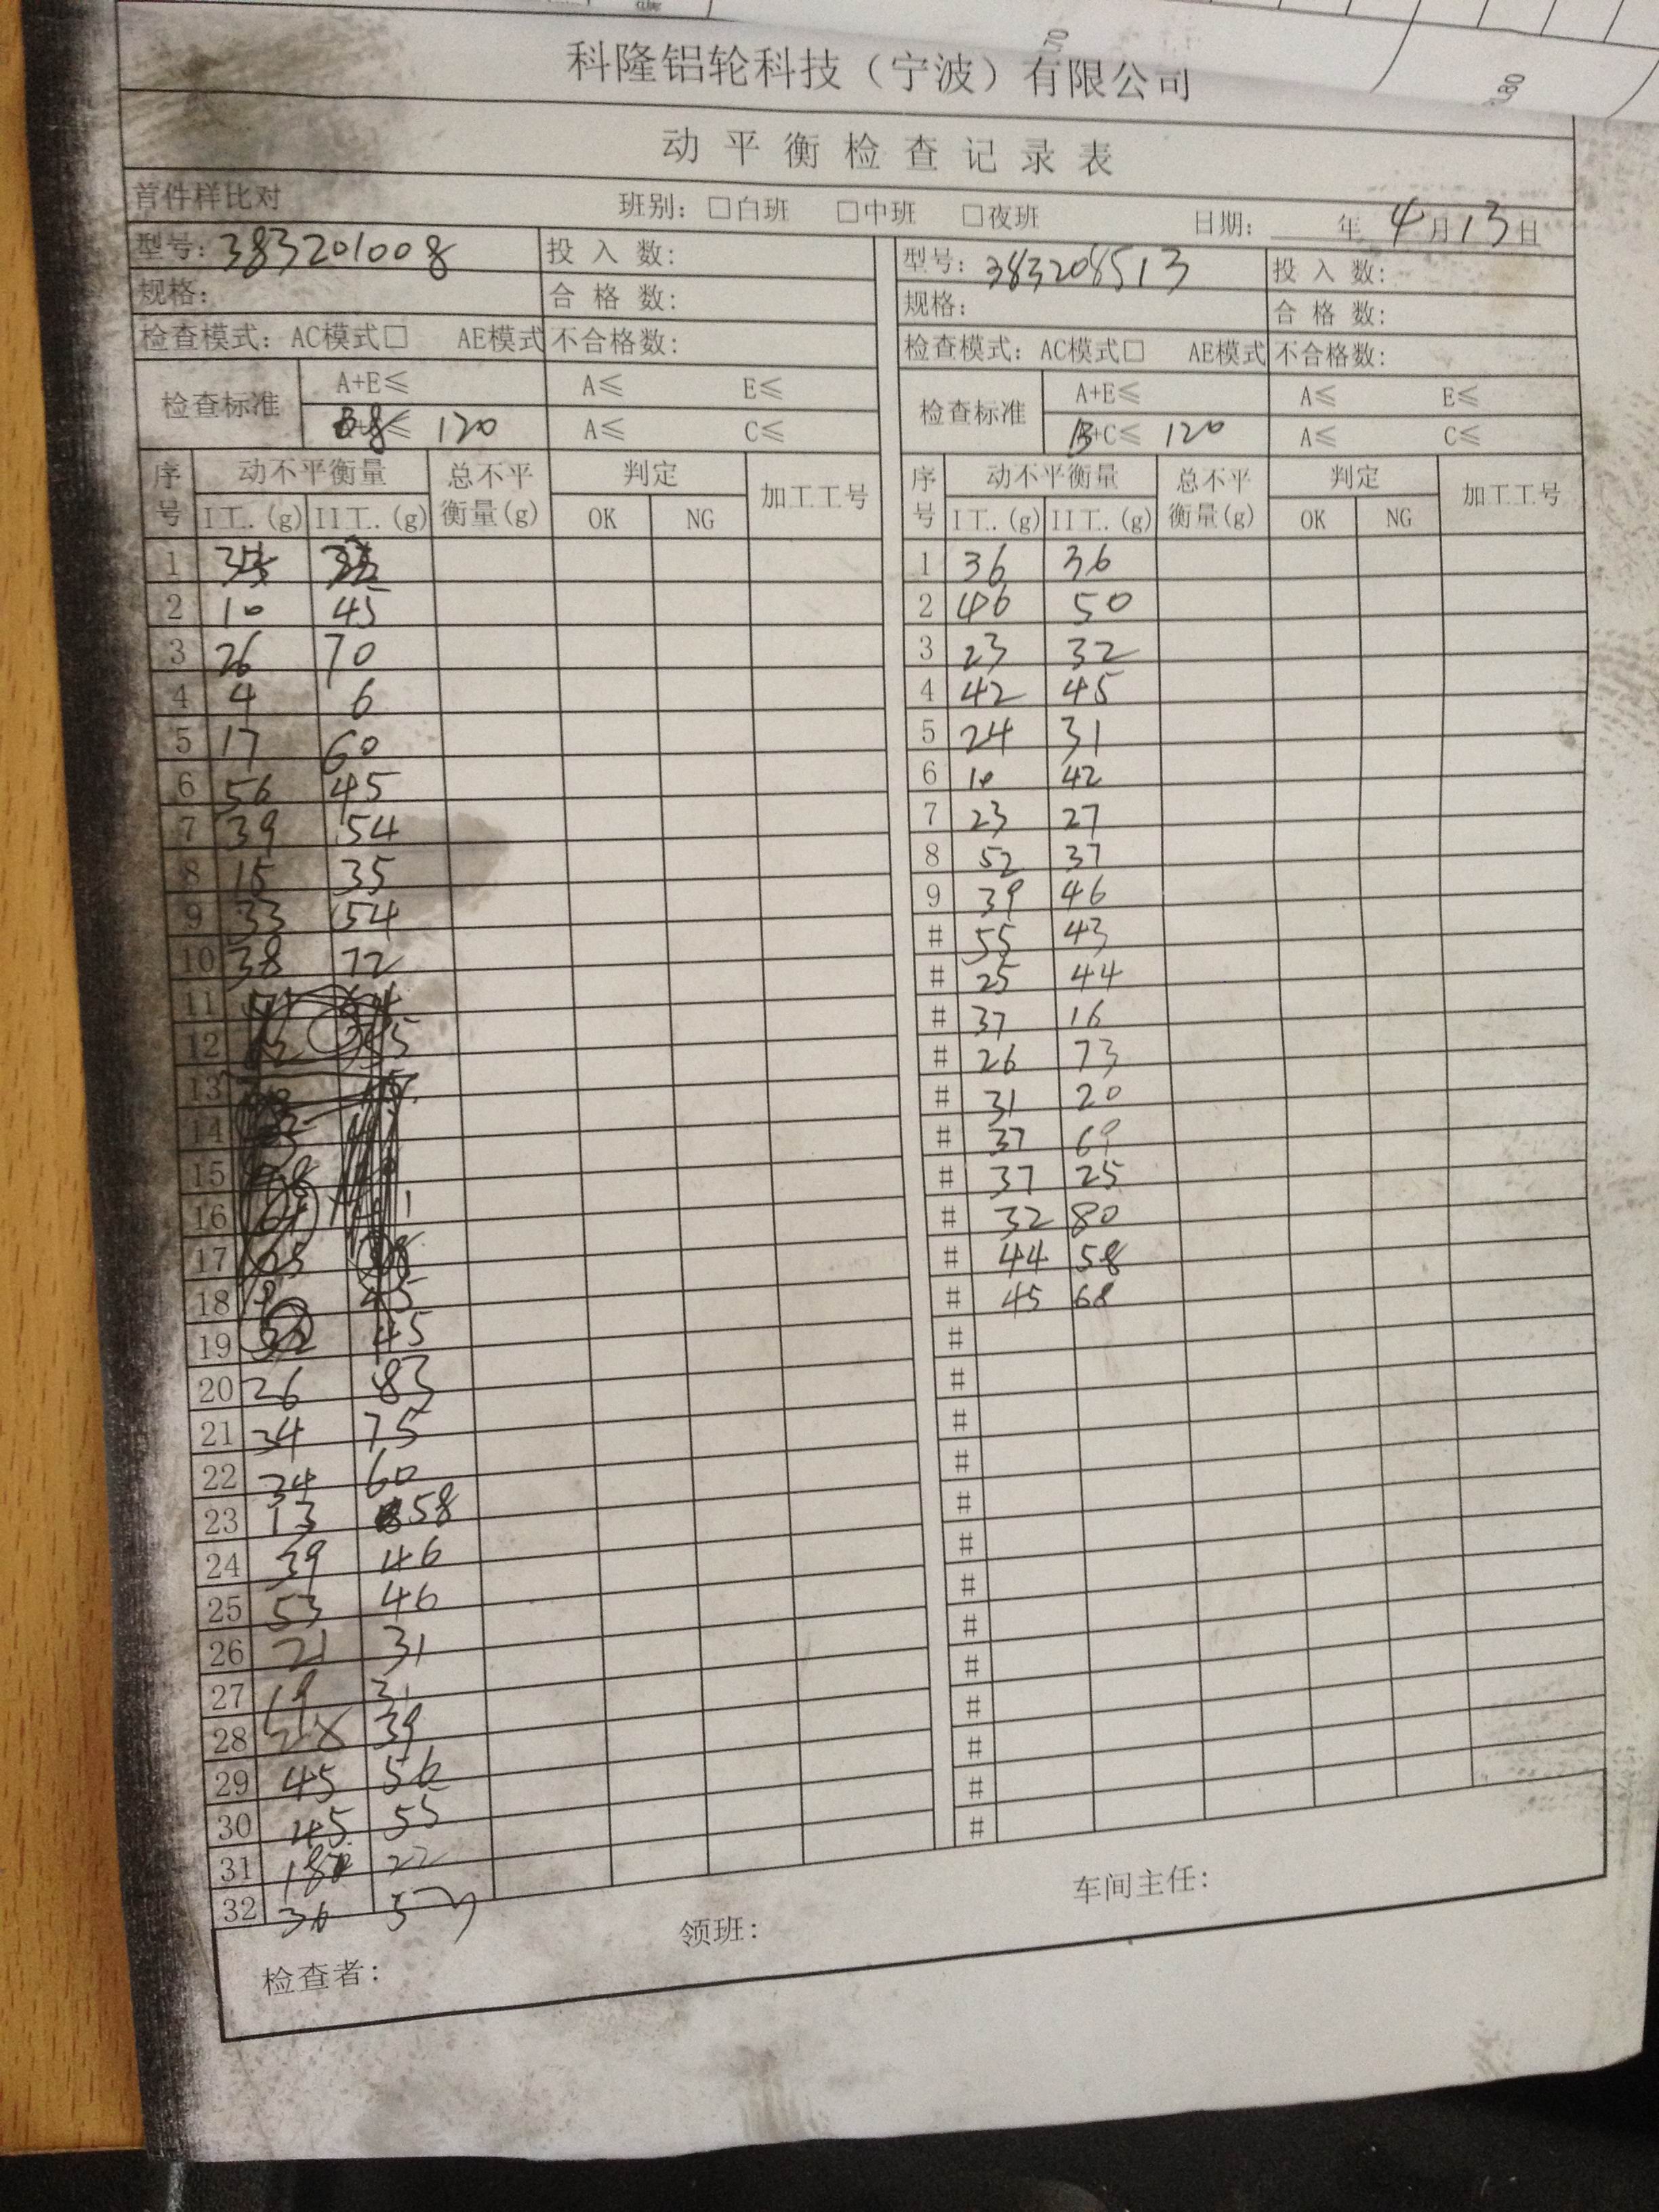 科隆铝轮科技（宁波）有限公司
动平衡检查记录表
首件样比对 班别：□白班 □中班 □夜班 日期： 年 4月13日
型号：383201008 投入数： 型号：383208513 投入数：
规格： 合格数： 规格： 合格数：
检查模式：AC模式□ AE模式 不合格数： 检查模式：AC模式□ AE模式 不合格数：
检查标准 A+E≤ A≤ E≤ 检查标准 A+E≤ A≤ E≤
≤ 120 A≤ C≤ B+C≤ 120 A≤ C≤
序号 动不平衡量 总不平衡量(g) 判定 加工工号 序号 动不平衡量 总不平衡量(g) 判定 加工工号
I工.(g) II工.(g) OK NG I工.(g) II工.(g) OK NG
1 1 36 36
2 10 45 2 46 50
3 26 70 3 23 32
4 4 6 4 42 45
5 17 60 5 24 31
6 56 45 6 10 42
7 39 54 7 23 27
8 15 35 8 52 37
9 33 54 9 39 46
10 38 72 # 55 43
11 # 25 44
12 # 37 16
13 # 26 73
14 # 31 20
15 # 37 69
16 # 37 25
17 # 32 80
18 45 # 44 58
19 45 # 45 68
20 26 83 #
21 34 75 #
22 34 60 #
23 13 58 #
24 39 46 #
25 53 46 #
26 21 31 #
27 19 31 #
28 39 #
29 45 56 #
30 45 55 #
31 22 #
32 36
检查者： 领班： 车间主任：